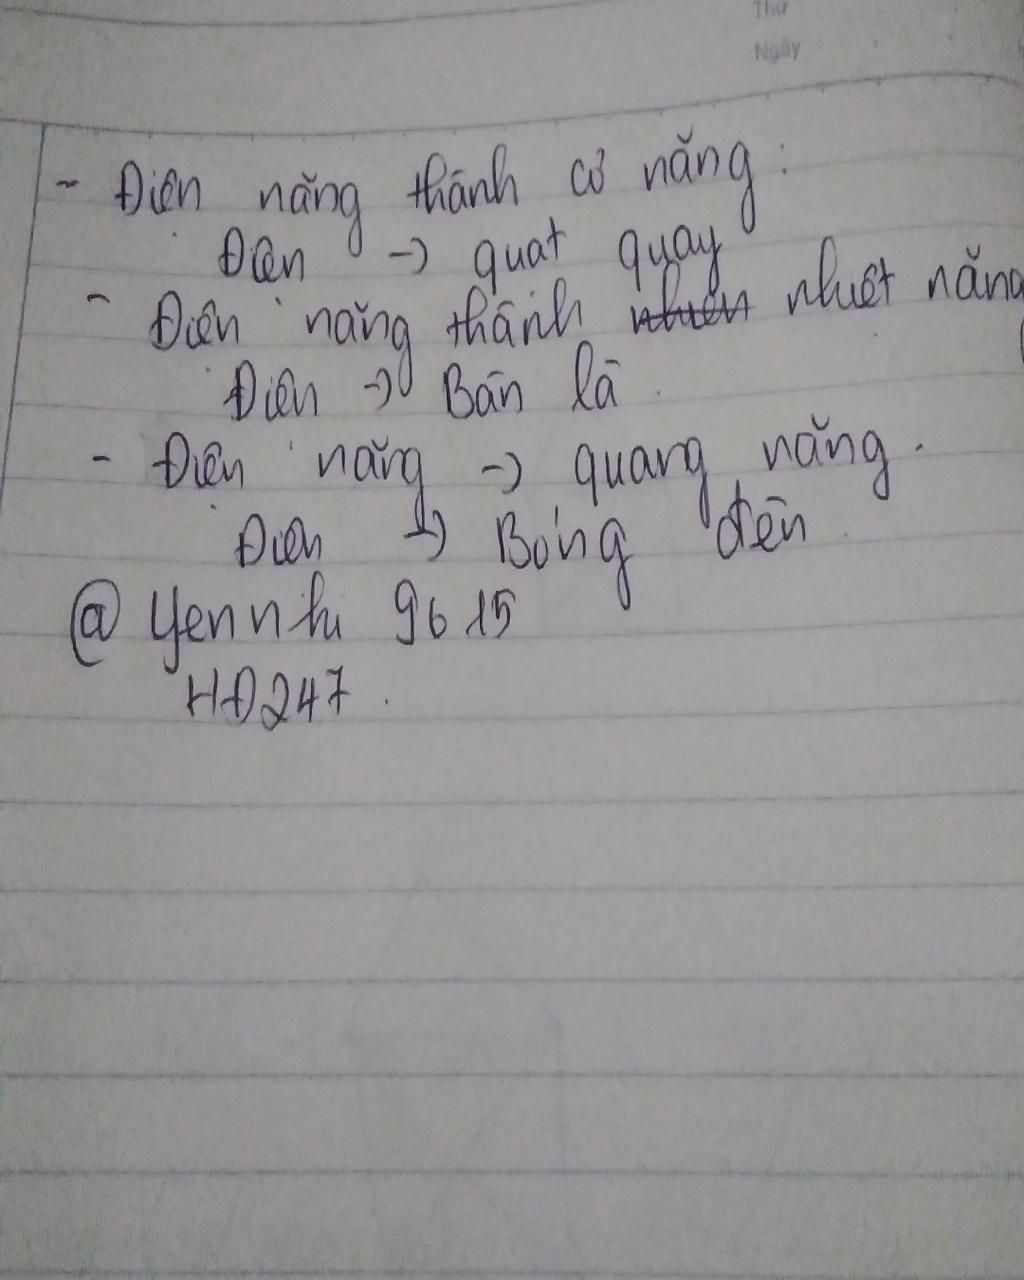 Thứ
Ngày
- Điện năng thành cơ năng :
Điện -> quạt quay
- Điện năng thành nhiệt năng
Điện -> Bàn là .
- Điện năng -> quang năng .
Điện -> Bóng đèn .
@ Yennhi 9615
HĐ247 .